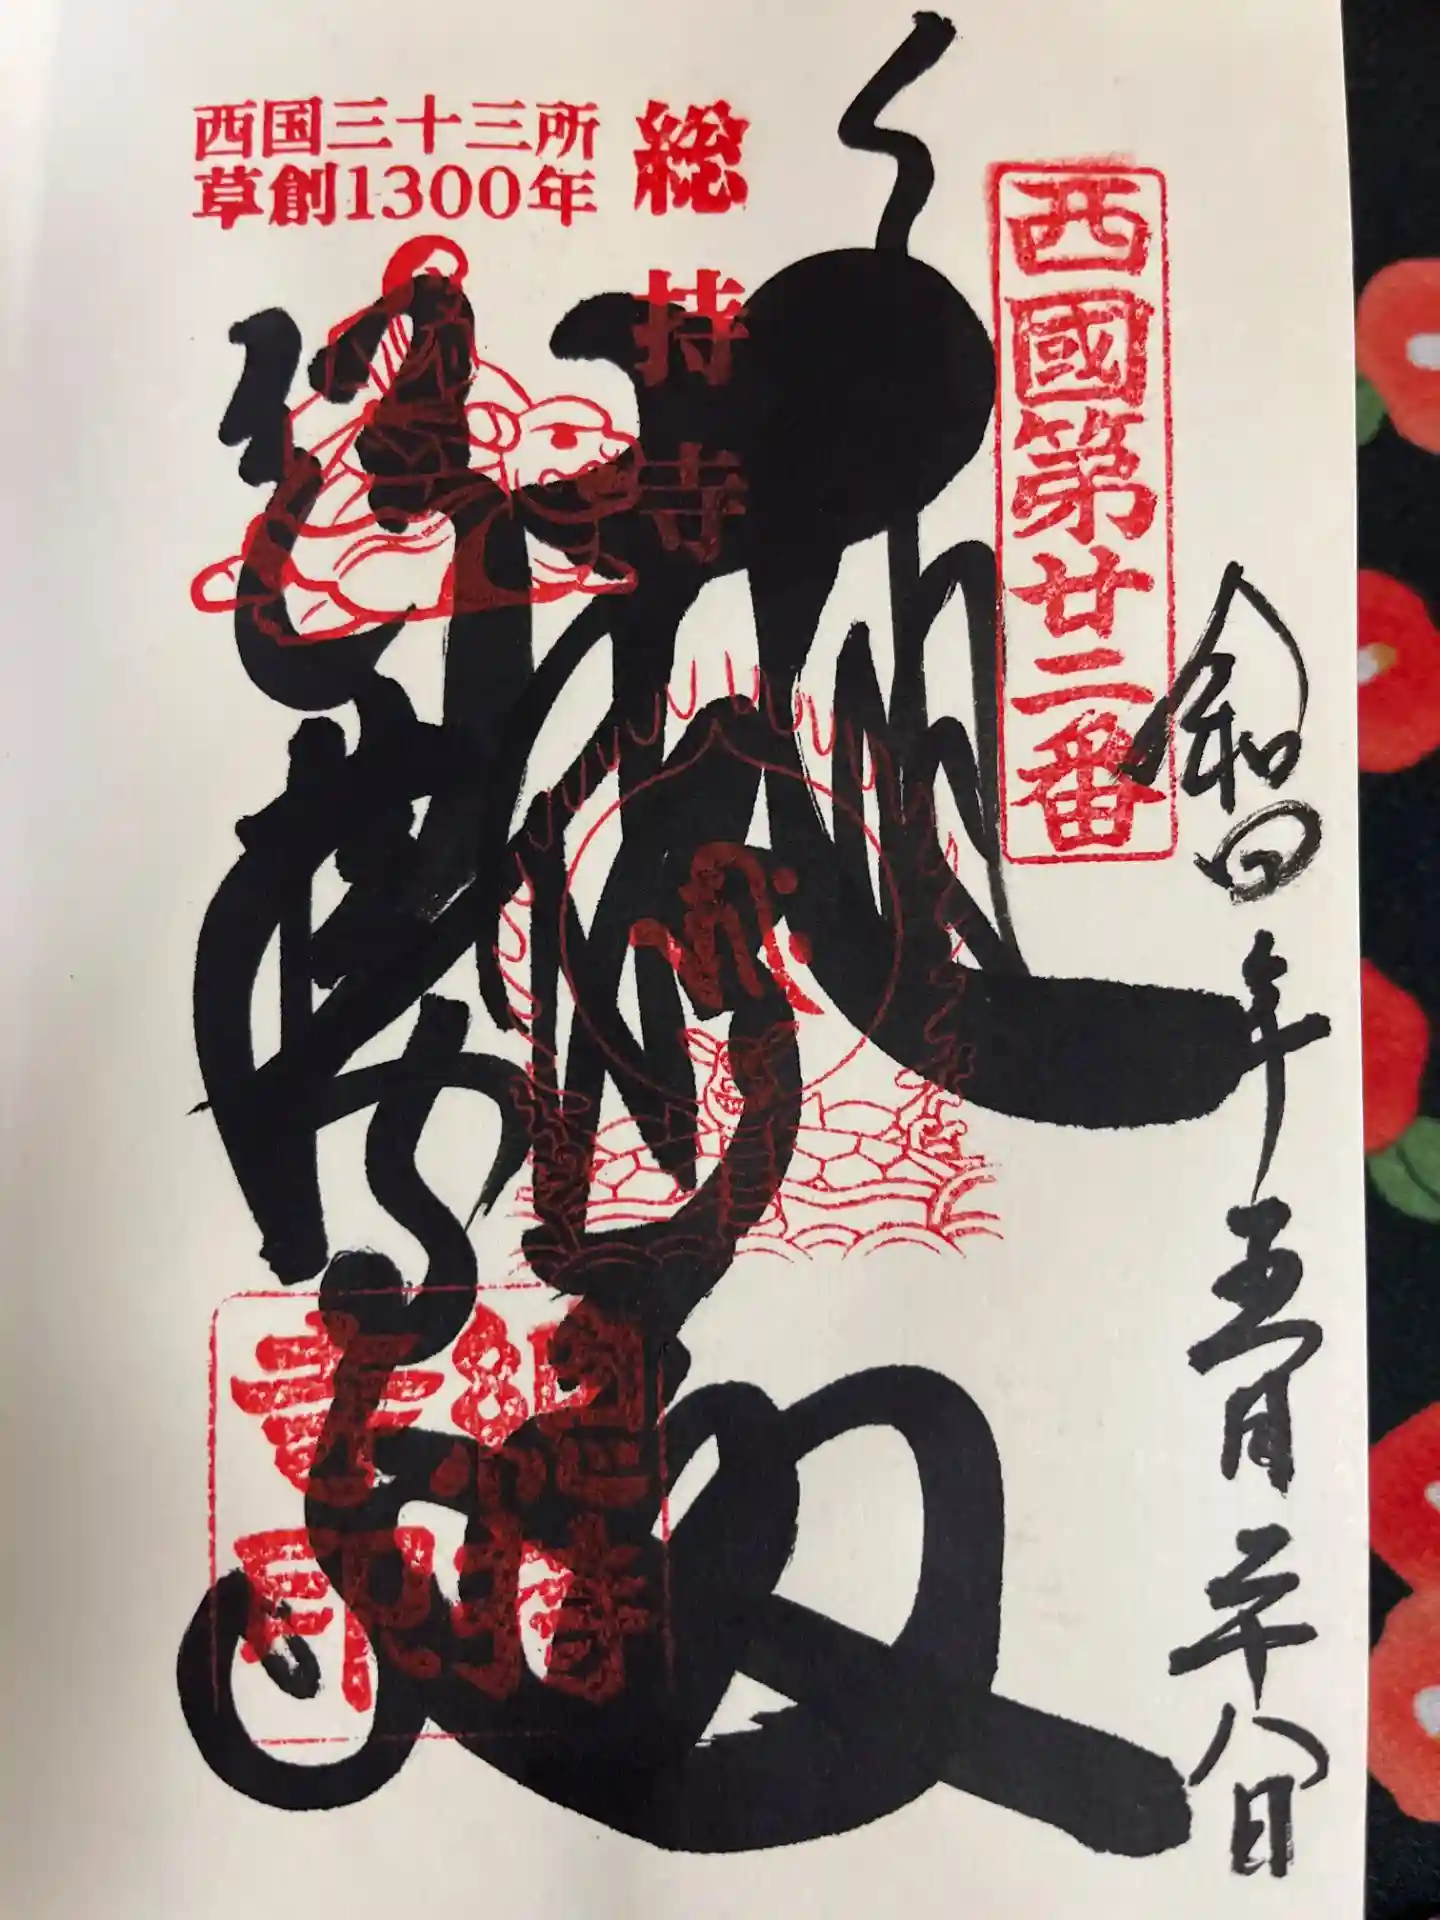 西国三十三所
草創1300年
総持寺
西國第廿二番
令和四年五月二十八日
大悲殿
総持寺印